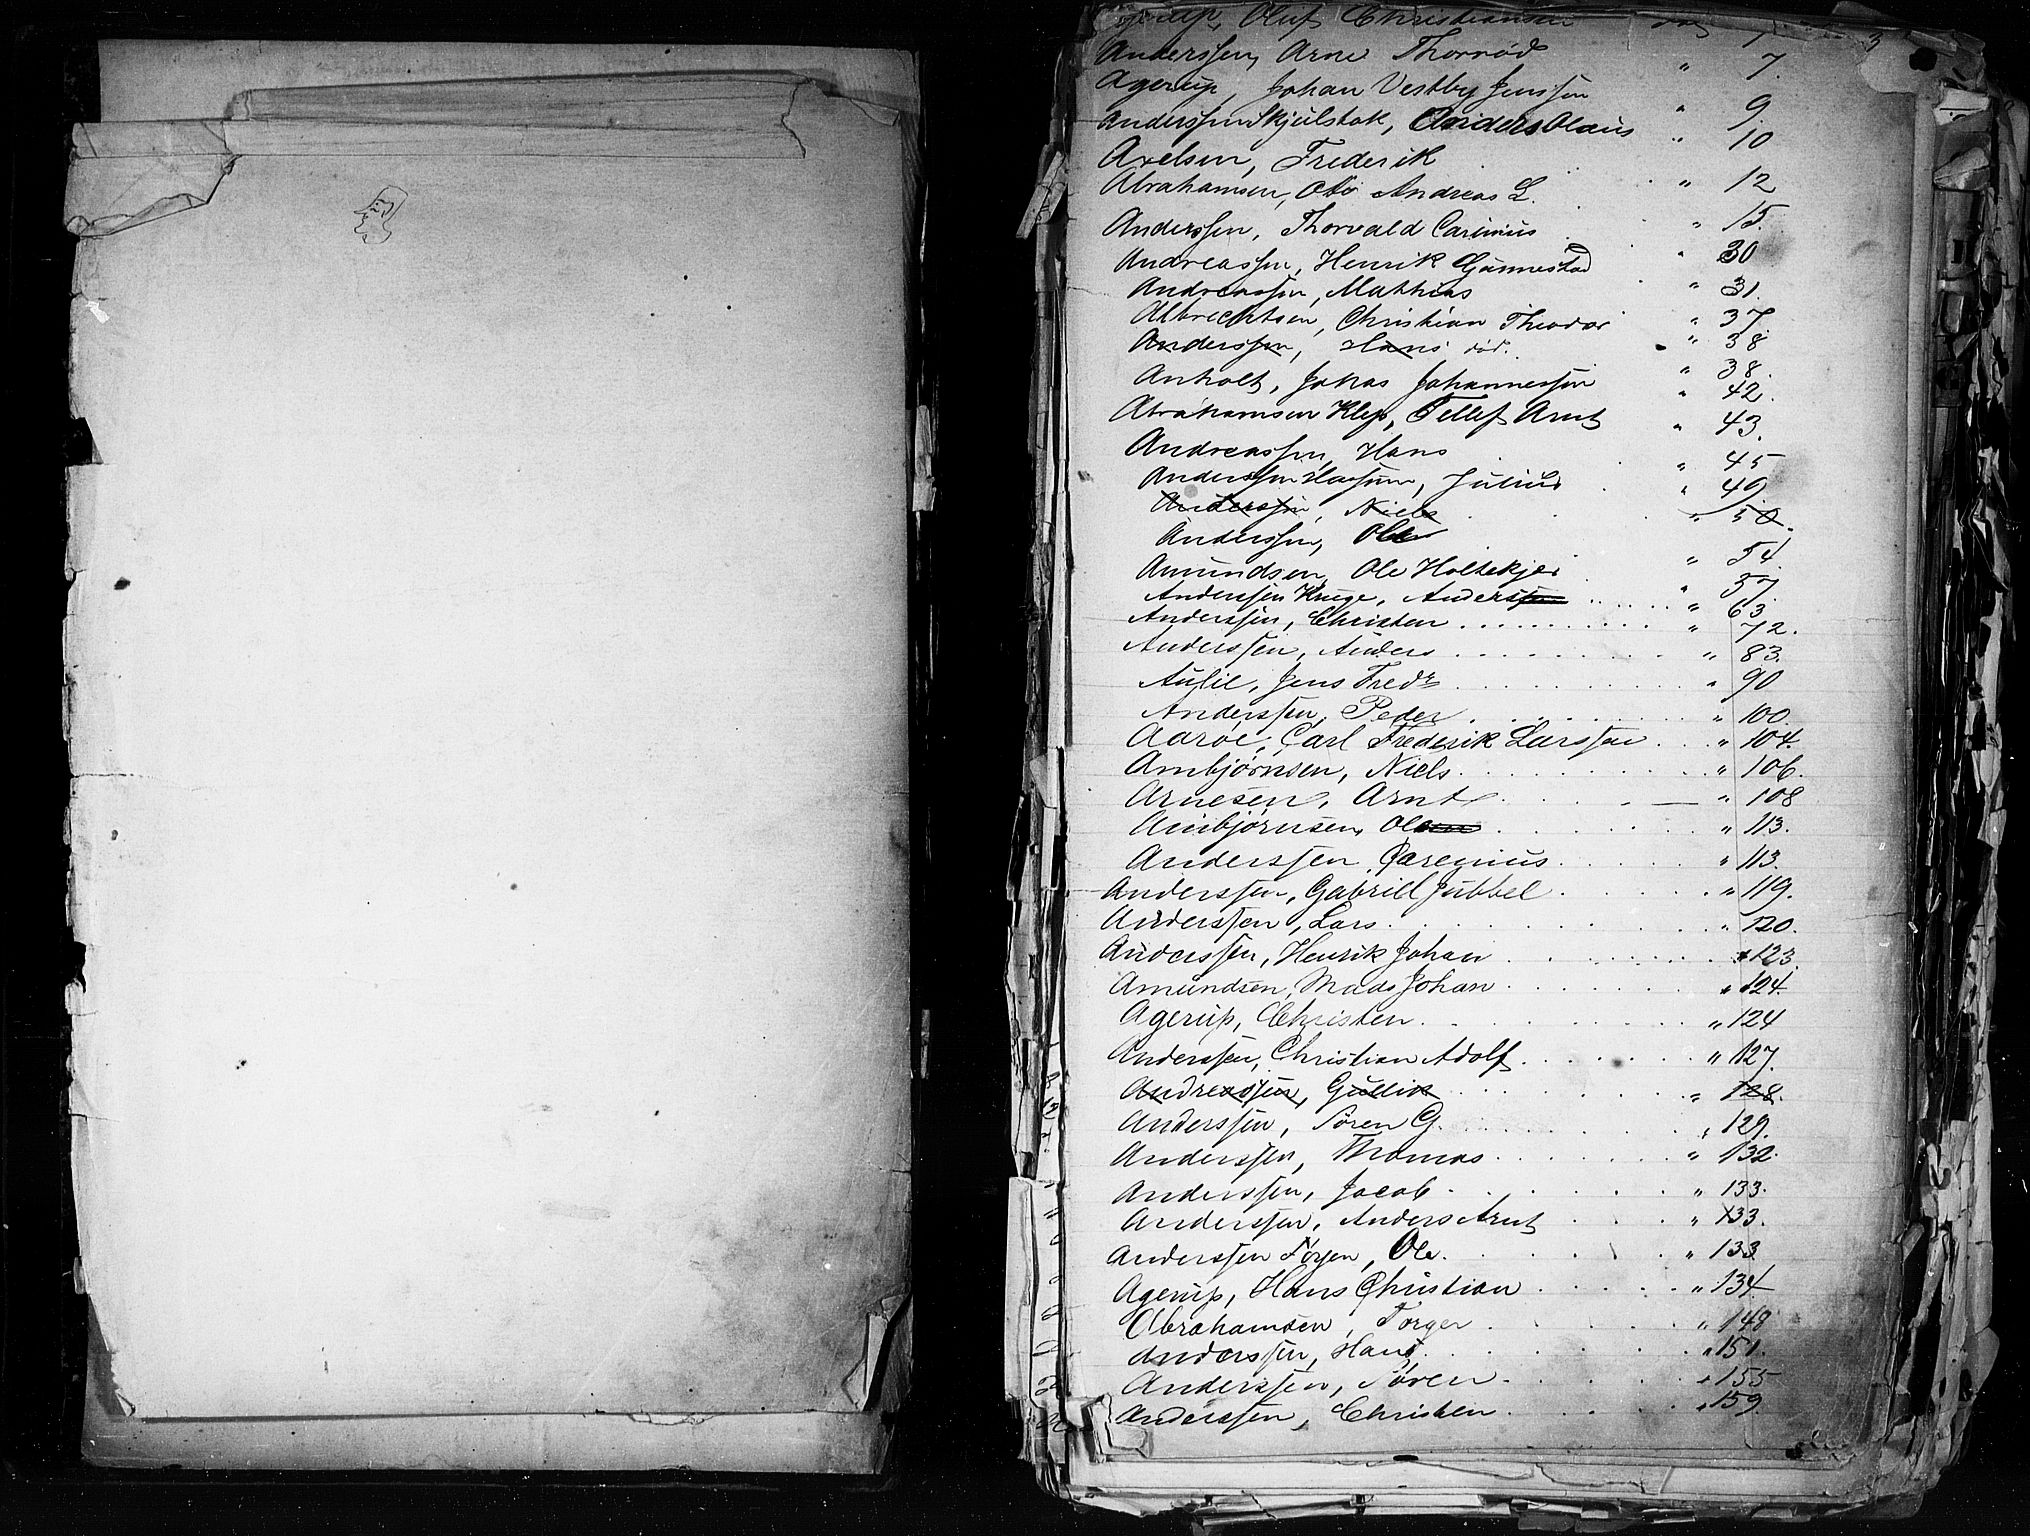 Agerup, Oluf Christiansen
Anderssen, Arne Thorrød " 7.
Agerup, Johan Vestby Jenssen " 9.
Anderssen Skjulstok, Anders Olaus " 10
Axelsen, Frederik " 12
Abrahamsen, Otto Andreas L. " 15.
Anderssen, Thorvald Carinius " 30
Andreassen, Henrik Gunnestad " 31.
Andreassen, Mathias " 37.
Albrechtsen, Christian Theodor " 38
Anderssen, Hans død. " 38.
Anholt, Johas Johannessen " 42.
Abrahamsen Klep, Tellef Arnt " 43.
Andreassen, Hans " 45
Anderssen, Julius " 49
Anderssen, Niels " 50.
Anderssen, Ole " 54.
Amundsen, Ole Holtekjer " 57.
Anderssen Kruge, Anderssen " 63.
Anderssen, Christen " 72.
Anderssen, Anders " 83.
Aulie, Jens Fredr " 90
Anderssen, Peder " 100.
Aarøe, Carl Frederik Larssen " 104.
Ambjørnsen, Niels " 106.
Arnesen, Arnt " 108
Ambjørnsen, Olsen " 113.
Anderssen, Caregnius " 113.
Anderssen, Gabriel Jubbel " 119.
Anderssen, Lars " 120.
Anderssen, Henrik Johan " 123.
Amundsen, Mads Johan " 124.
Agerup, Christen " 124
Anderssen, Christian Adolf " 127.
Andreassen, Gullik " 128.
Anderssen, Søren G. " 129.
Anderssen, Thomas " 132.
Anderssen, Jacob " 133.
Anderssen, Anders Arnt " 133.
Anderssen, Ole " 133
Agerup, Hans Christian " 134.
Abrahamsen, Torger " 148
Anderssen, Hans " 151.
Anderssen, Søren " 155
Anderssen, Christen " 159.